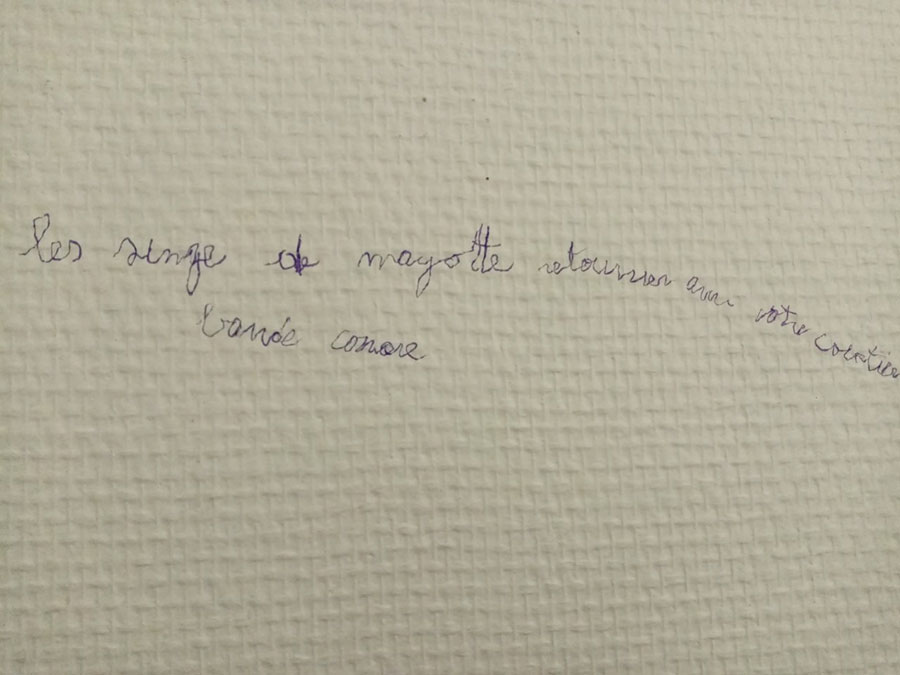 les singe de mayotte retourner avec votre
bande comore